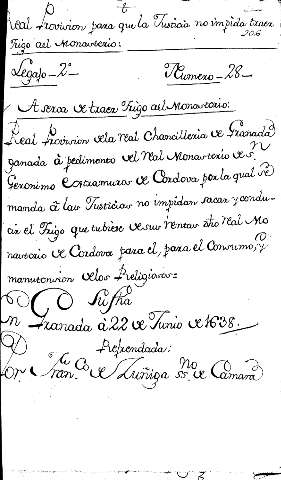 Real Provision para que la Justicia no impida traer
Trigo ael Monasterio:
206
Legajo - 2º
Numero - 28 -
Aserca de traer Trigo ael Monasterio:
Real Provision de la real Chancilleria de Granada
ganada á pedimento del Real Monasterio de Sn
Geronimo extramuros de Cordova por la qual se
manda á las Justicias no impidan sacar y condu-
cir el Trigo que tubiese de sus rentas dho Real Mo
nasterio de Cordova para el, para el Consumo, y
manutension de los Religiosos=
en
Granada á 22 de Junio de 1638.
Refrendada:
Por Franco de Zuñiga sno de Camara